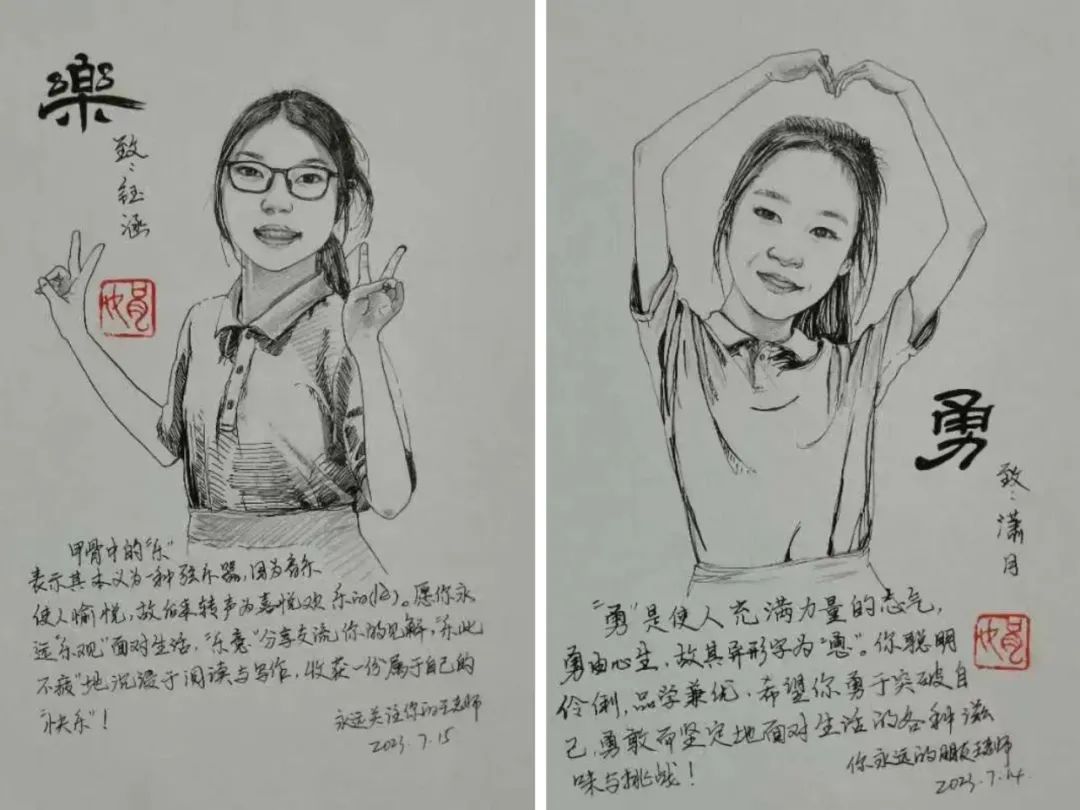 樂
致：钰涵
甲骨中的“乐”
表示其本义为一种弦乐器，因为音乐
使人愉悦，故后来转声为喜悦欢乐的(lè)。愿你永
远“乐观”面对生活，“乐意”分享交流你的见解，“乐此
不疲”地沉浸于阅读与写作，收获一份属于自己的
“快乐”！
永远关注你的王老师
2023.7.15
勇
致：潇月
“勇”是使人充满力量的志气，
勇由心生，故其异形字为“恿”。你聪明
伶俐，品学兼优，希望你勇于突破自
己，勇敢而坚定地面对生活的各种滋
味与挑战！
你永远的朋友王老师
2023.7.14.